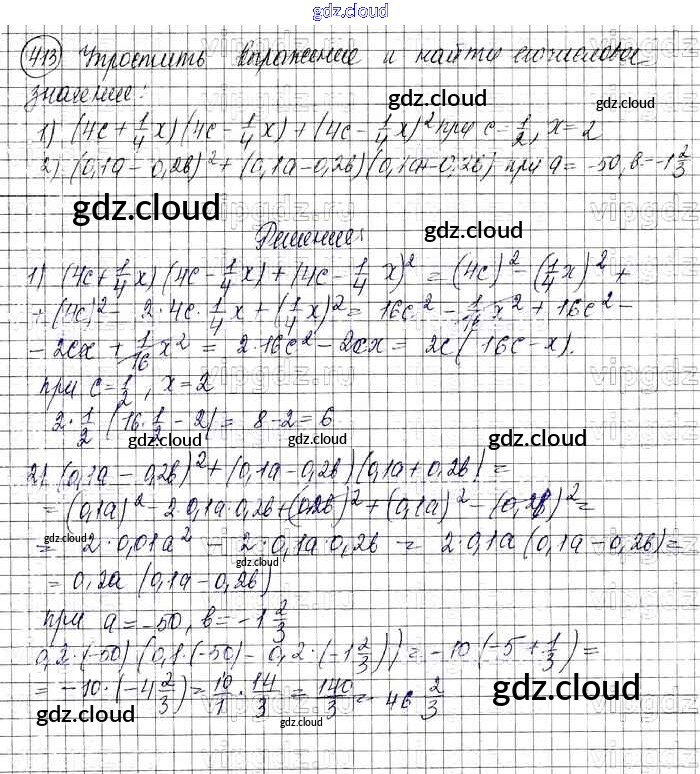 gdz.cloud
413 Упростить выражение и найти его числовое
значение:
gdz.cloud gdz.cloud
1) (4c + 1/4 x)(4c - 1/4 x) + (4c - 1/4 x)² при c = 1/2, x = 2
2) (0,1a - 0,2b)² + (0,1a - 0,2b)(0,1a + 0,2b) при a = -50, b = -1 2/3
gdz.cloud
gdz.cloud
Решение:
1) (4c + 1/4 x)(4c - 1/4 x) + (4c - 1/4 x)² = (4c)² - (1/4 x)² +
+ (4c)² - 2·4c·1/4 x + (1/4 x)² = 16c² - 1/16 x² + 16c² -
- 2cx + 1/16 x² = 2·16c² - 2cx = 2c(16c - x).
при c = 1/2, x = 2
2·1/2 (16·1/2 - 2) = 8 - 2 = 6
gdz.cloud gdz.cloud gdz.cloud
2) (0,1a - 0,2b)² + (0,1a - 0,2b)(0,1a + 0,2b) =
= (0,1a)² - 2·0,1a·0,2b + (0,2b)² + (0,1a)² - (0,2b)² =
gdz.cloud
= 2·0,01a² - 2·0,1a·0,2b = 2·0,1a(0,1a - 0,2b) =
gdz.cloud
= 0,2a (0,1a - 0,2b)
при a = -50, b = -1 2/3
0,2·(-50)(0,1·(-50) - 0,2·(-1 2/3)) = -10(-5 + 1/3) =
= -10·(-4 2/3) = 10/1 · 14/3 = 140/3 = 46 2/3
gdz.cloud gdz.cloud gdz.cloud